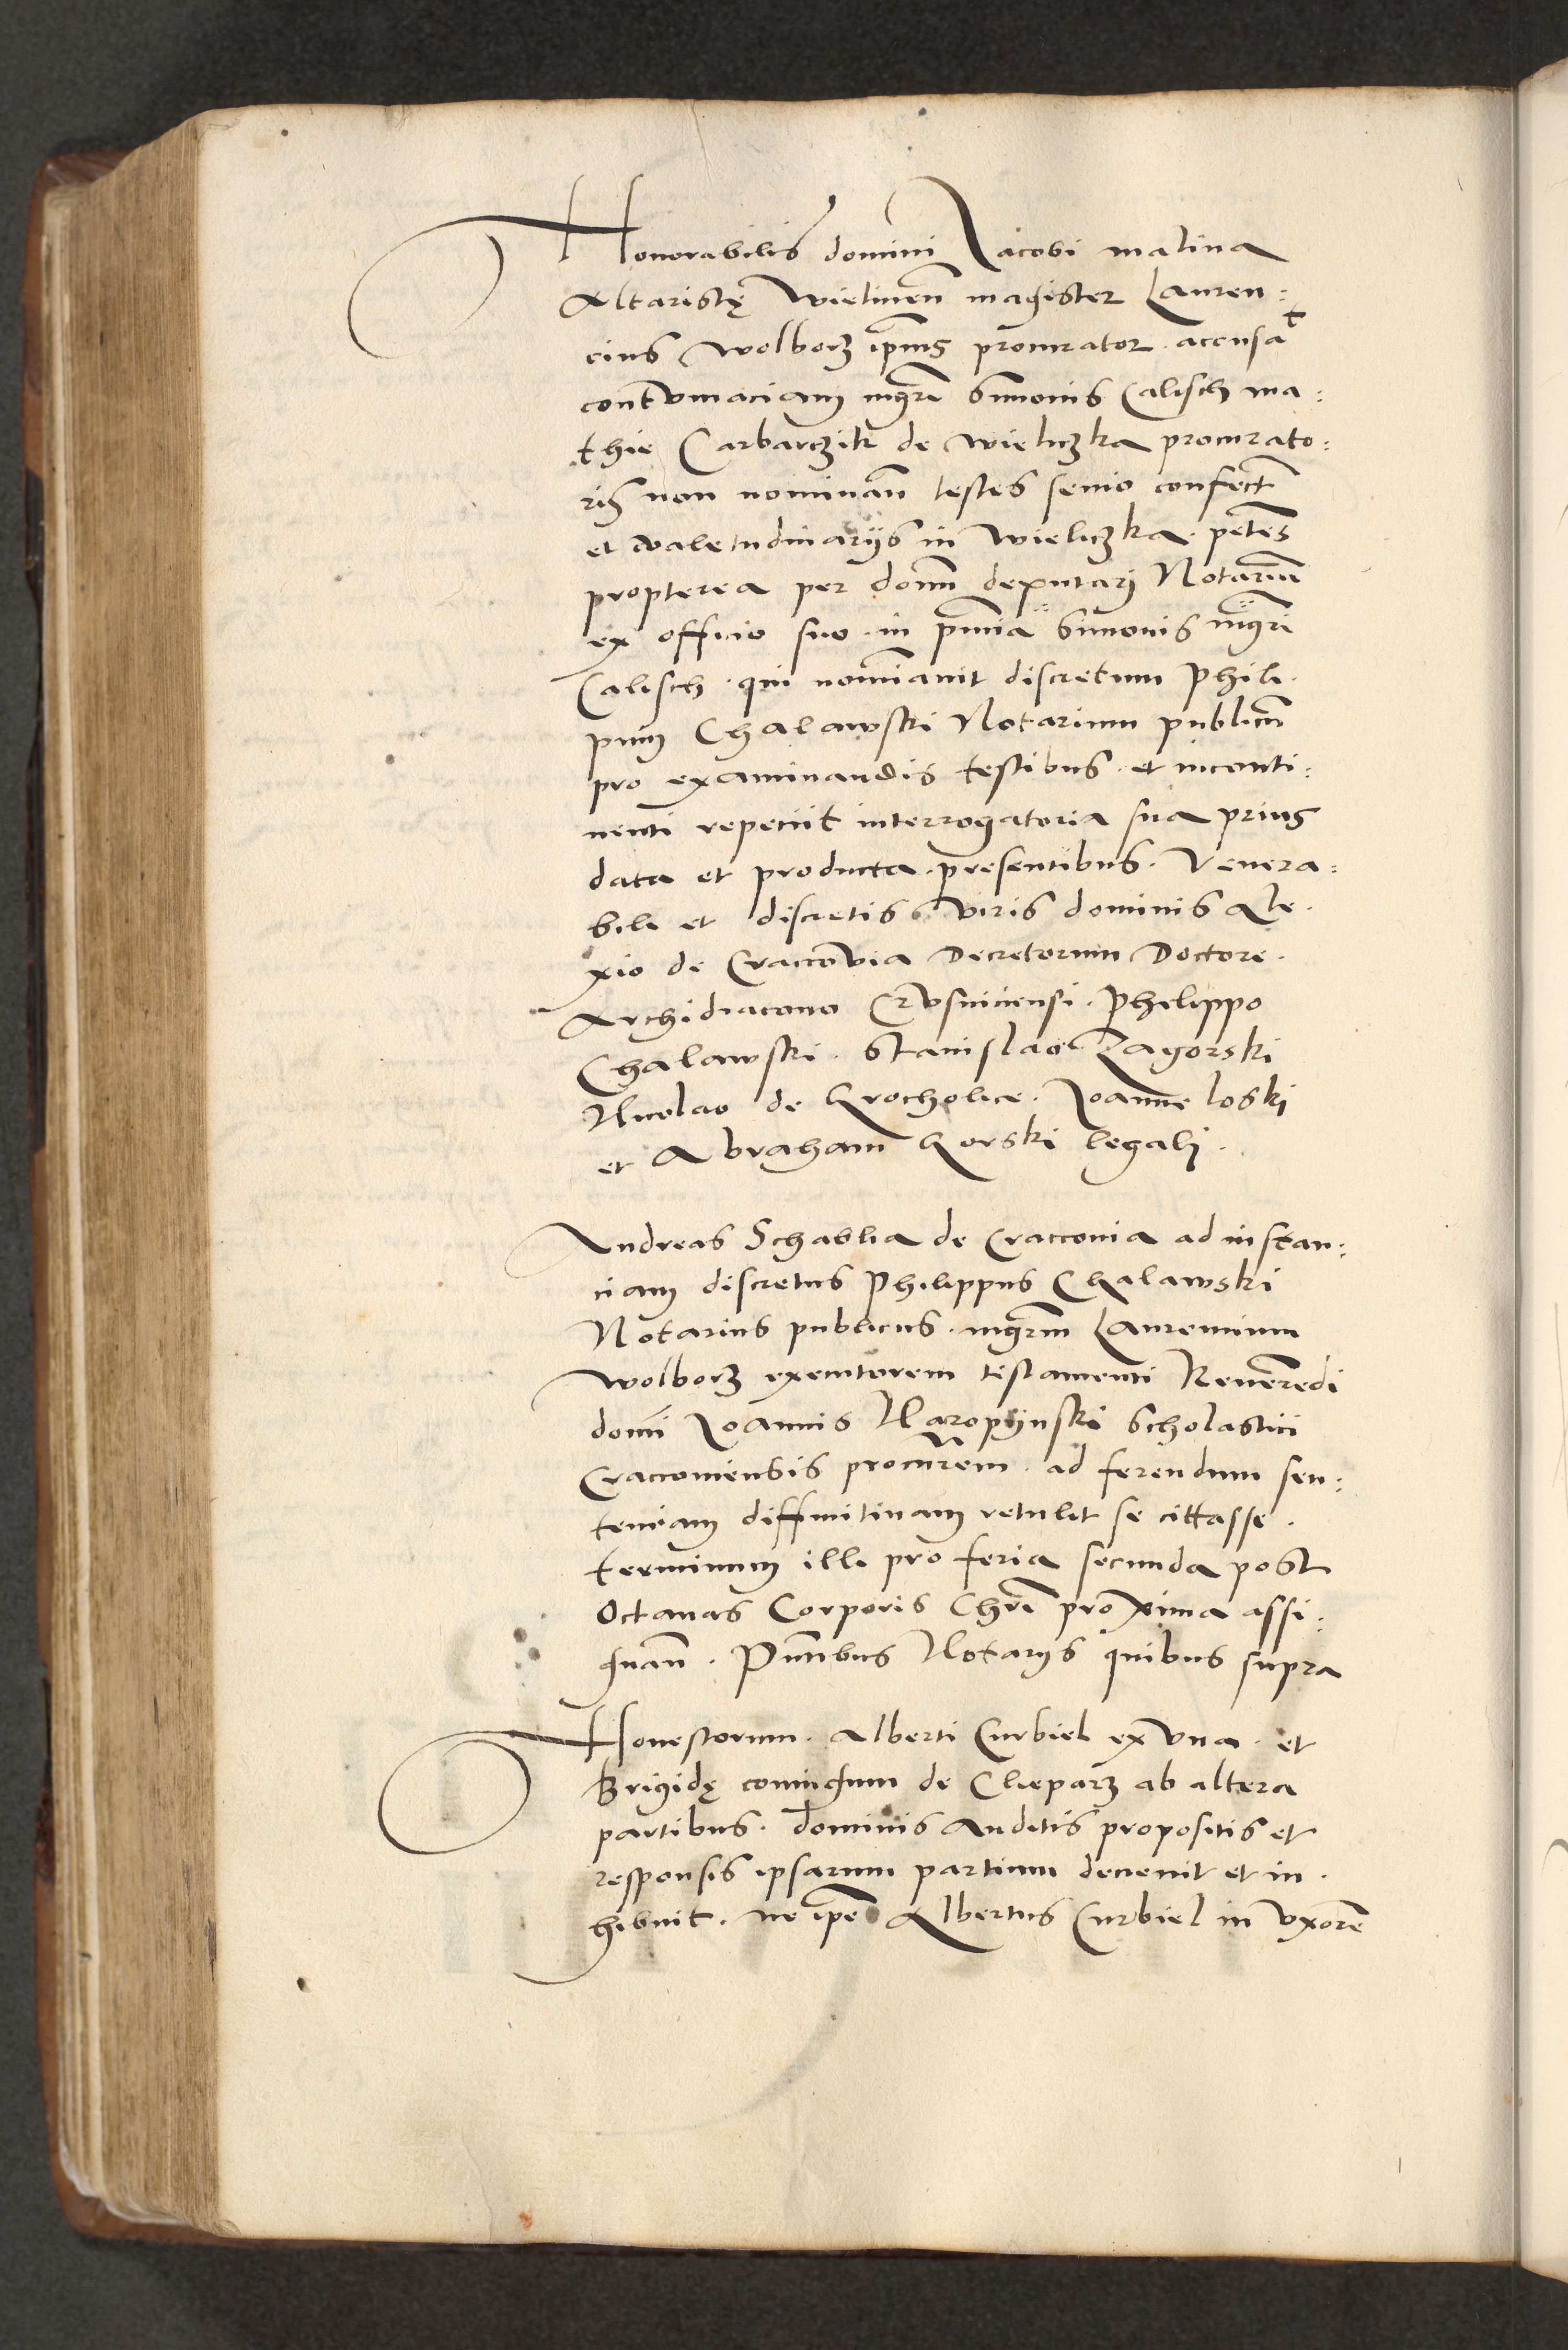 Honorabilis domini Jacobi malina
Altaristę Wielicień magister Lauren:
cius Wolborz ipius procurator. accusat
contumaciam mgri Simonis Calisch ma:
thie Carbarczik de Wieliczka procurato:
ris non nominan̄ testes senio confect
et valetudinarijs in Wieliczka. petēs
propterea per dom̄ deputari Notariū
ex officio suo. in p̄ntia Simonis mgri
Calisch. qui nominauit discretum Phili.
pum Chalawski Notarium publicū
pro examinandis testibus. et inconti:
nenti repeciit interrogatoria sua prius
data et producta. presentibus. Venera:
bili et discretis viris dominis Ale.
xio de Craccovia Decretorum Doctore.
Archidiacono Crusviciensi. Philippo
Chalawski. Stanislao Zagorski
Nicolao de Krocholice. Joanne Loski
et Abraham Gorski legali.
Andreas Schablia de Cracconia ad instan:
ciam discretus Philippus Chalawski
Notarius publicus. mgrm̄ Laurencium
Wolborz executorem testamenti Reuerēdi
domī Joannis Naropijnski Scholastici
Cracouiensis procur̄em. ad ferendum sen:
tenciam diffinitiuam retulit se cittasse.
terminum illi pro feria secunda post
Octauas Corporis Chrī proxima assi:
gnan̄. Pn̄tibus Notarijs quibus supra
Honestorum. Alberti Curbiel ex vna. et
Brigidę coniugum de Clieparz ab altera
partibus. dominis auditis propositis et
responsis ipsarum partium decreuit et in.
hibuit. ne ip̄e Albertus Curbiel in vxorē